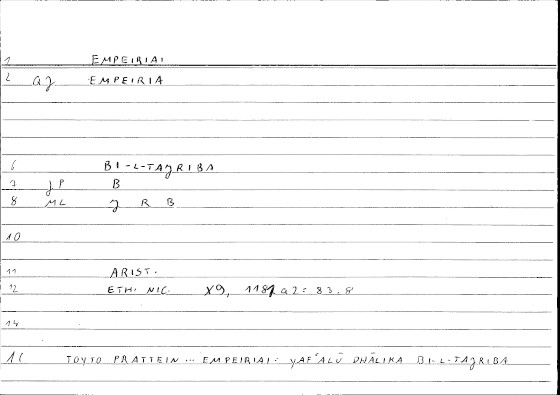 1 EMPEIRIAI
2 QJ EMPEIRIA
6 BI-L-TAJRIBA
7 JP B
8 ML J R B
10
11 ARIST.
12 ETH. NIC. X9, 1181 a2 = 83.8
14
16 TOYTO PRATTEIN ... EMPEIRIAI: YAF'ALŪ DHĀLIKA BI-L-TAJRIBA